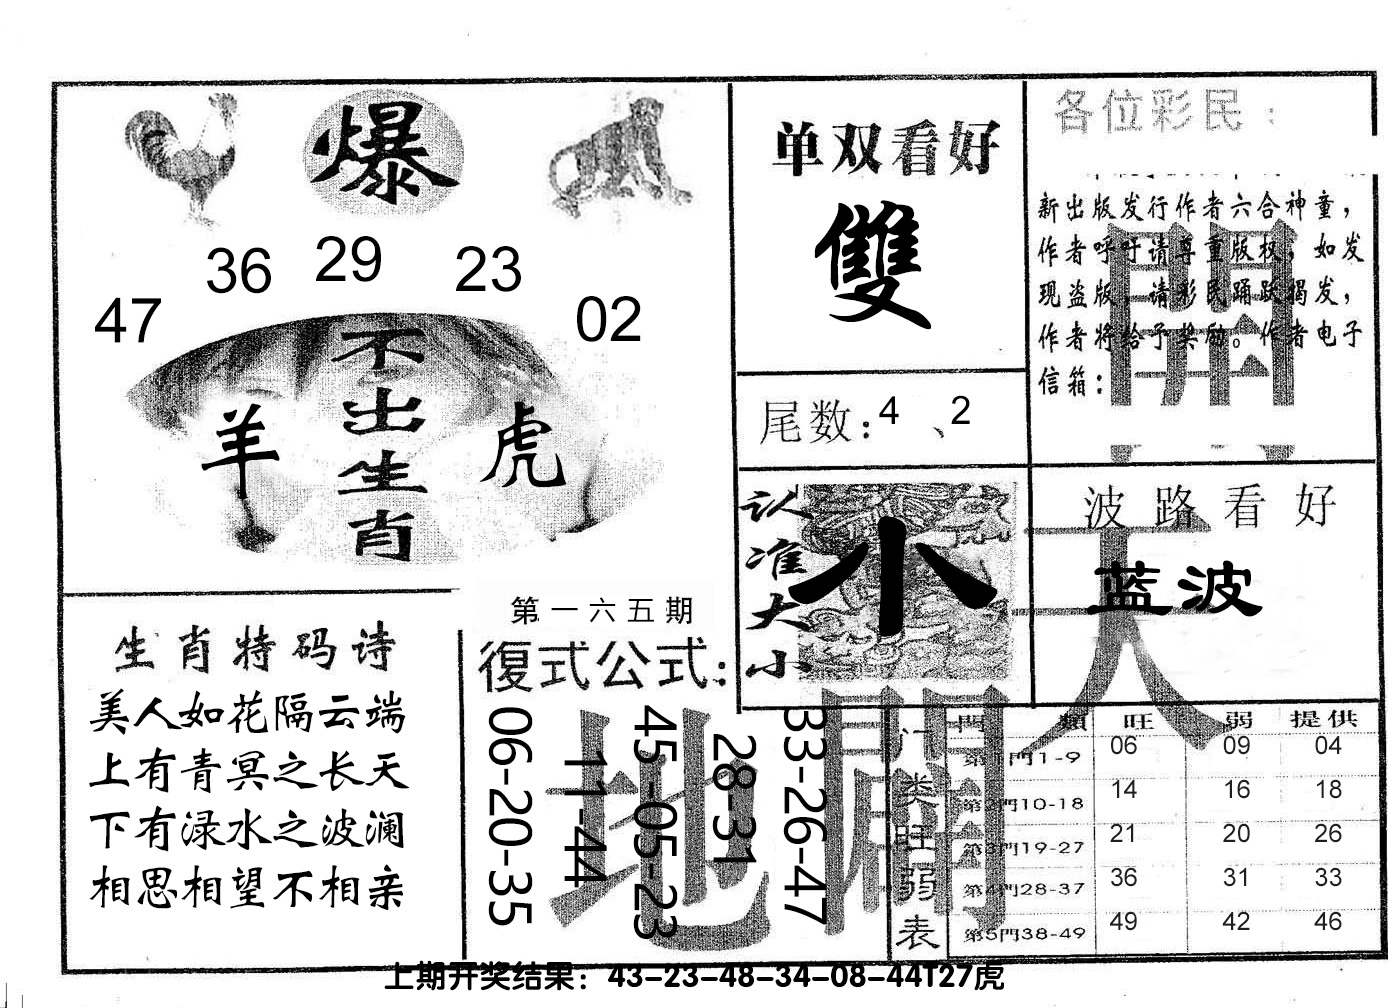 爆
36 29 23
47 02
不出生肖
羊 虎
单双看好
雙
尾数：4、2
各位彩民：
新出版发行作者六合神童，
作者呼吁请尊重版权，如发
现盗版，请彩民踊跃揭发，
作者将给予奖励。作者电子
信箱：
開
认准大小
小
波路看好
蓝波
天
生肖特码诗
美人如花隔云端
上有青冥之长天
下有渌水之波澜
相思相望不相亲
第一六五期
復式公式：
06-20-35
11-44
45-05-23
28-31
33-26-47
地
門类旺弱表
門類 旺 弱 提供
第1門1-9 06 09 04
第2門10-18 14 16 18
第3門19-27 21 20 26
第4門28-37 36 31 33
第5門38-49 49 42 46
上期开奖结果：43-23-48-34-08-44T27虎